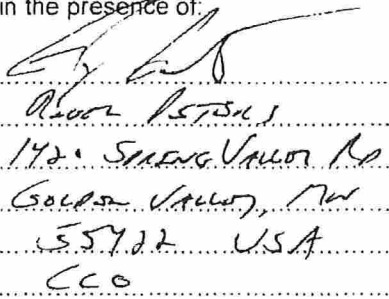 in the presence of:
Peters
1420 Spring Valley Rd
Golden Valley, MN
55422 USA
CCO